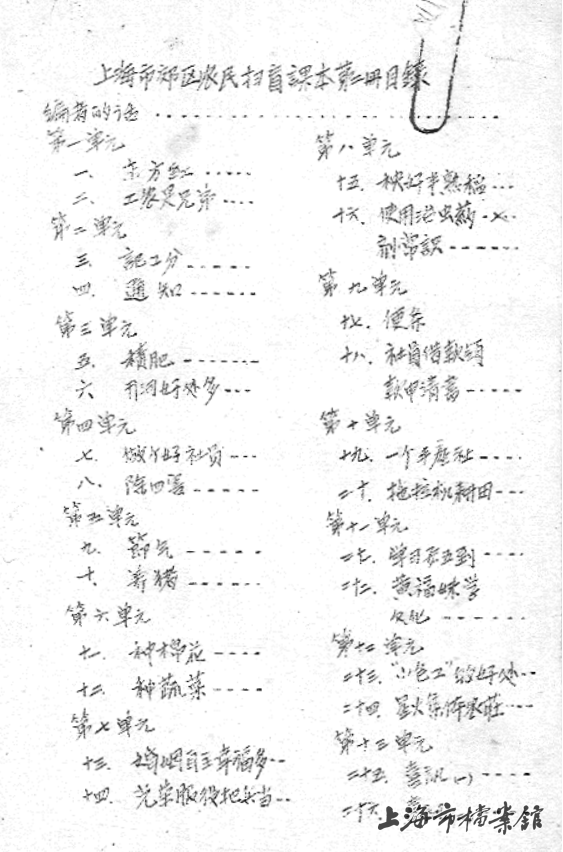 上海市郊区农民扫盲課本第二册目録
编者的话
第一单元
一、东方红
二、工农是兄弟
第二单元
三、記工分
四、通知
第三单元
五、積肥
六、开河好处多
第四单元
七、做个好社员
八、除四害
第五单元
九、節气
十、养猪
第六单元
十一、种棉花
十二、种蔬菜
第七单元
十三、婚姻自主幸福多
十四、光荣服役把兵当
第八单元
十五、秧好半熟稻
十六、使用治虫药
剂常識
第九单元
十七、便条
十八、社員借款領
款申請書
第十单元
十九、一个手
二十、拖拉机耕田
第十一单元
二十、学习五到
二十二、黄福妹学
文化
第十二单元
二十三、"小包工"的好处
二十四、星火集体农莊
第十三单元
二十五、喜訊(一)
二十六、喜
上海市檔案館